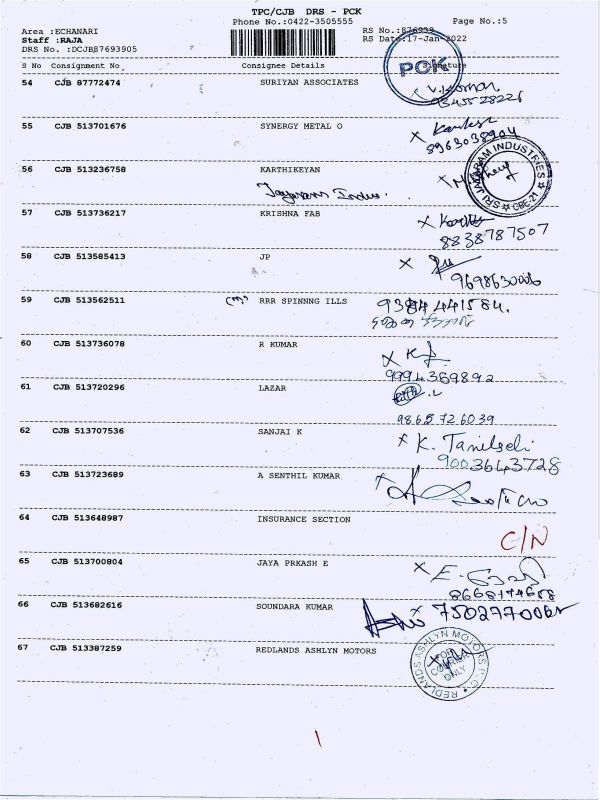 TPC/CJB DRS - PCK
Phone No.:0422-3505555 Page No.:5
Area :ECHANARI RS No.:876939
Staff :RAJA RS Date:17-Jan-2022
DRS No. :DCJB87693905
S No Consignment No Consignee Details Signature
PCK
54 CJB 87772474 SURIYAN ASSOCIATES
55 CJB 513701676 SYNERGY METAL O
8963038904
56 CJB 513236758 KARTHIKEYAN
SRI JAIRAM INDUSTRIES CBE-21
57 CJB 513736217 KRISHNA FAB
8838787507
58 CJB 513585413 JP
59 CJB 513562511 RRR SPINNNG ILLS
9384441584.
60 CJB 513736078 R KUMAR
9994369892
61 CJB 513720296 LAZAR
9865726039
62 CJB 513707536 SANJAI K
9003643728
63 CJB 513723689 A SENTHIL KUMAR
64 CJB 513648987 INSURANCE SECTION
C/N
65 CJB 513700804 JAYA PRKASH E
66 CJB 513682616 SOUNDARA KUMAR
67 CJB 513387259 REDLANDS ASHLYN MOTORS
REDLANDS ASHLYN MOTORS
FOR COURIER ONLY